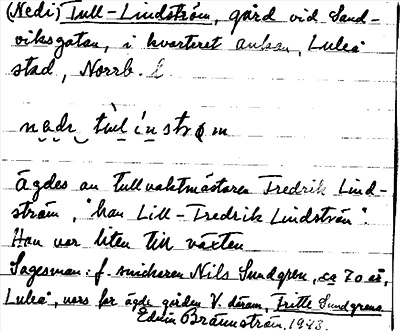 (Nedi) Tull-Lindström, gård vid Sand-
viksgatan, i kvarteret ankan, Luleå
stad, Norrb. l.
ägdes av tullvaktmästaren Fredrik Lind-
ström, "han Lill-Fredrik Lindström".
Han var liten till växten.
Sagesman: f. snickaren Nils Sundgren, ca 70 år,
Luleå, vars far ägde gården V. därom, Fritte Sundgrens
Edvin Brännström. 1983.